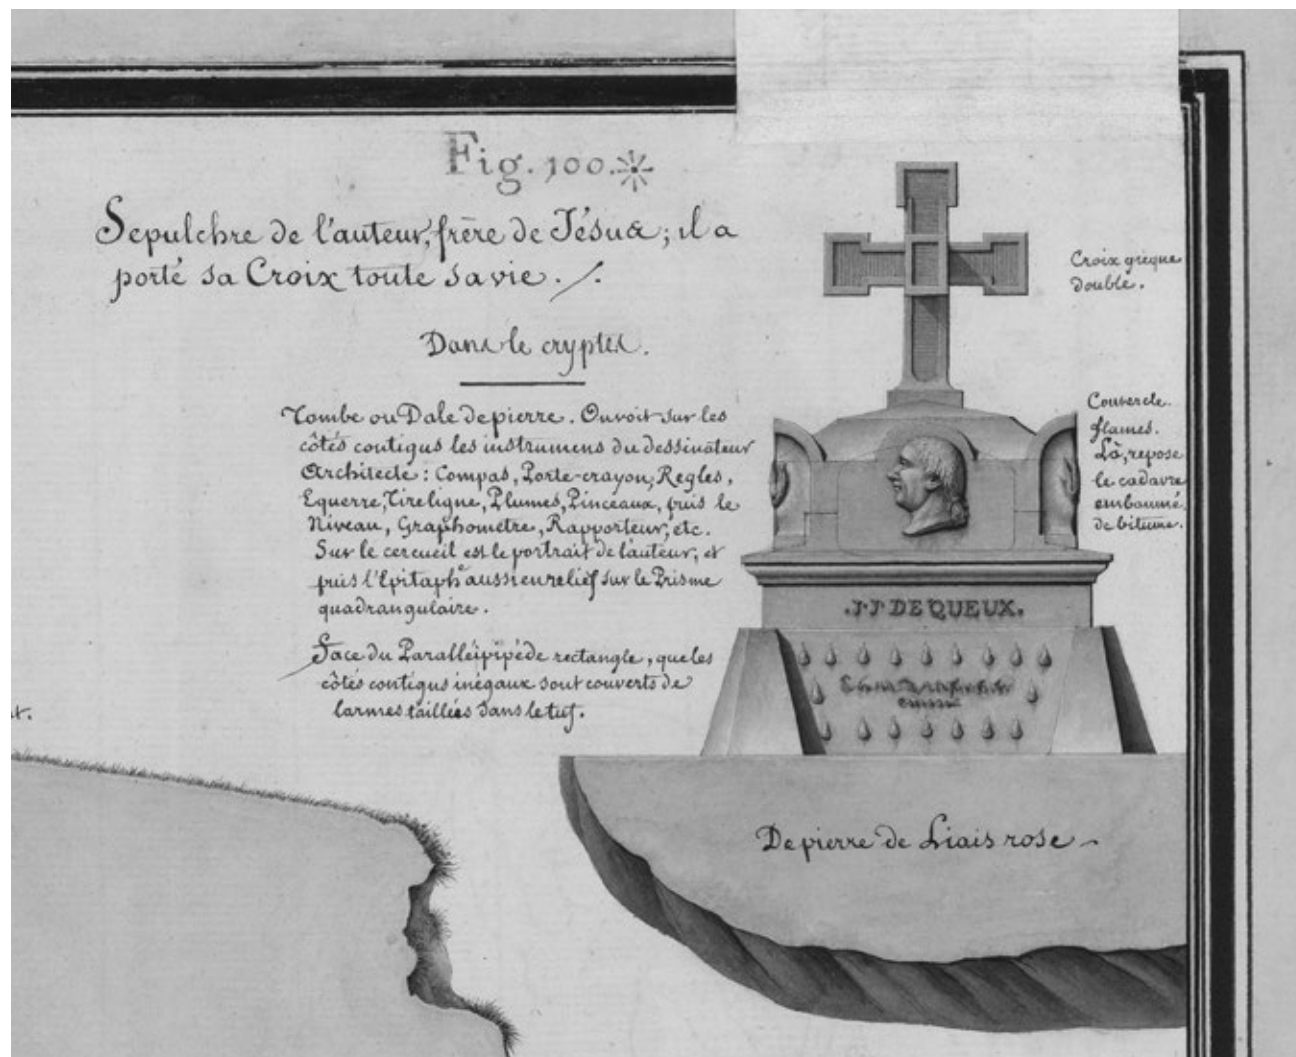 Fig. 100.
Sepulchre de l'auteur, frère de Jésus; il a
porté sa Croix toute sa vie. /.
Dans le cryptes.
Tombe ou Dale de pierre. On voit sur les
côtés contigus les instrumens du dessinateur
Architecte: Compas, Porte-crayon, Regles,
Equerre, Tire ligne, Plumes, Pinceaux, puis le
Niveau, Graphometre, Rapporteur, etc.
Sur le cercueil est le portrait de l'auteur; et
puis l'Epitaphe aussi en relief sur le Prisme
quadrangulaire.
Face du Paralléipipéde rectangle, que les
côtés contigus inégaux sont couverts de
larmes taillées dans le tuf.
Croix gréque
double.
Couvercle.
flames.
Là, repose
le cadavre
embaumé
de bitume.
.J.J DEQUEUX.
De pierre de Liais rose